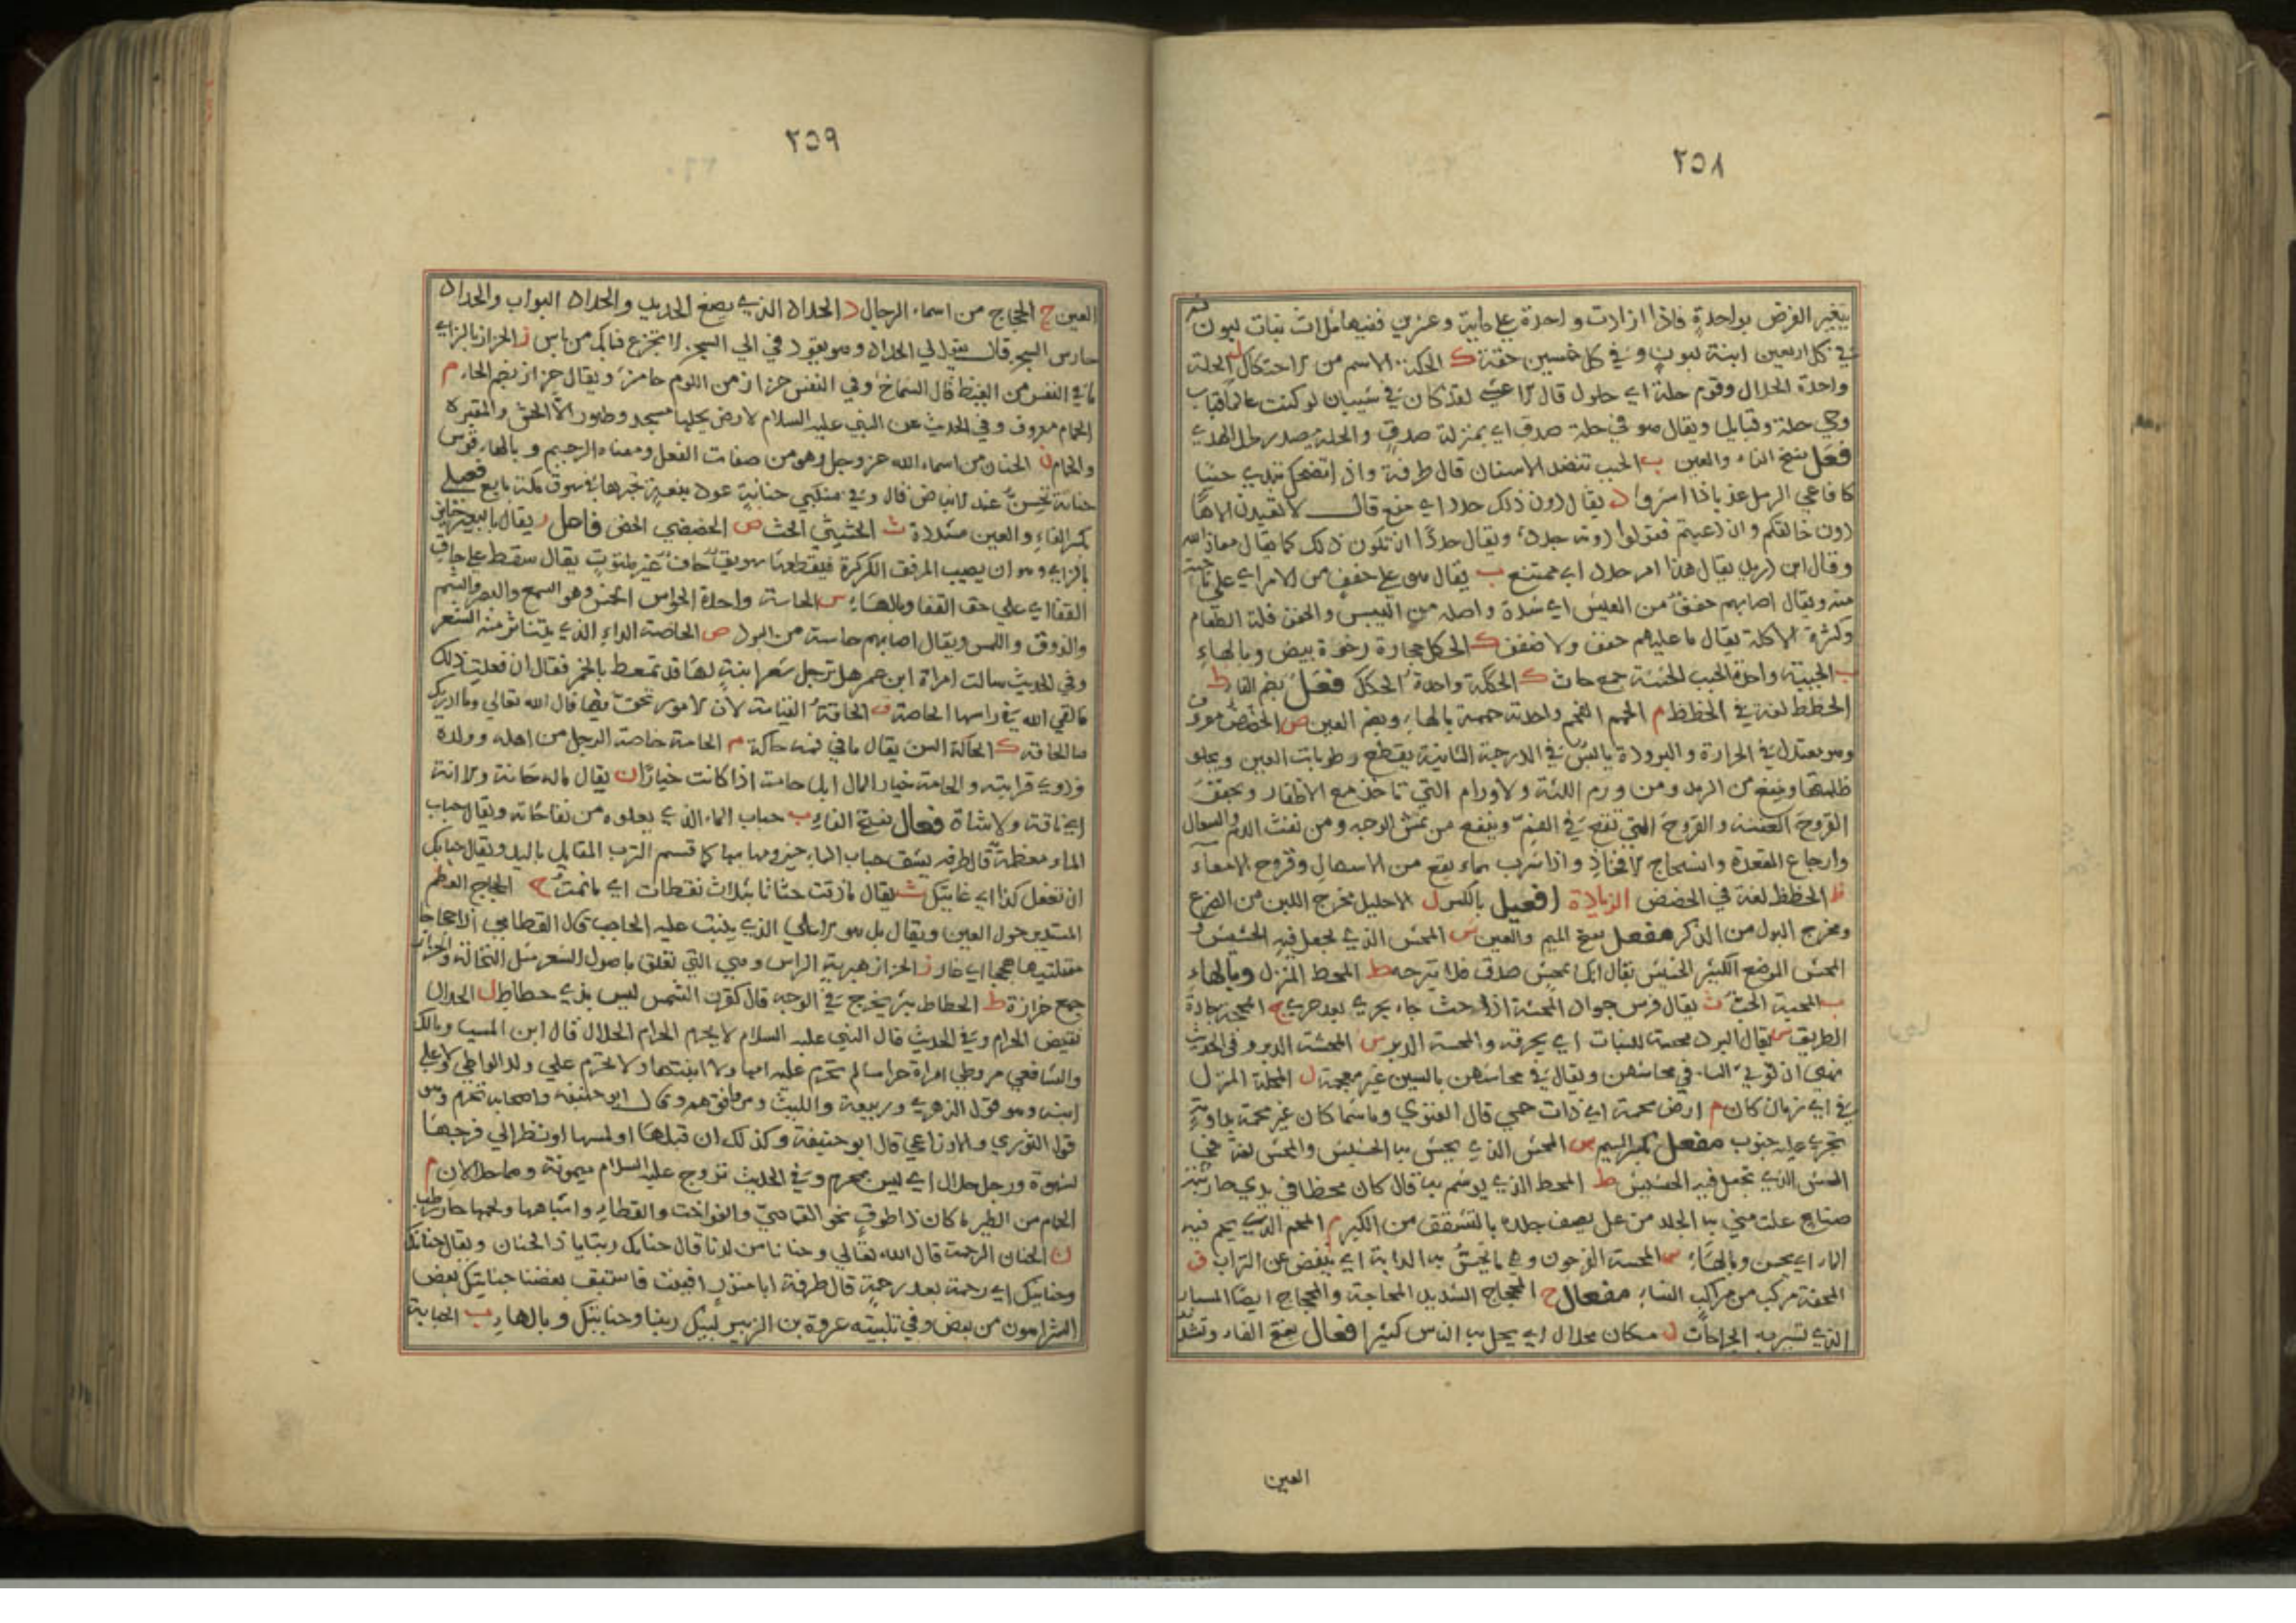 ٢٥٨
يتغير الفرض بواحدة فاذا ازادت واحدة على ماية وعشرين ففيها ثلاث بنات لبون ثم
في كل اربعين ابنة لبون وفي كل خمسين حقة ك الحكة الاسم من الاحتكاك ل الحلة
واحدة الحلال وقوم حلة اي حلول قال الاعشى لقد كان في شيبان لو كنت عالما قباب
وحي حلة وقبايل ويقال هو في حلة صدق اي بمنزلة صدق والحلة مصدر حل الهدي
فعل بفتح الفاء والعين ب الحبب تنضد الاسنان قال طرفة واذا تضحك تبدي حببا
كافاحي الرمل عذبا ذا اشر د يقال دون ذلك حدد اي منع قال لا تعبدن الاها
دون خالقكم وان دعيتم فقولوا دونه حدد ويقال حددا ان تكون ذلك كما يقال معاذ الله
وقال ابن دريد يقال هذا امر حدد اي ممتنع يقال هو على حفف من الامر اي على ناحية
منه ويقال اصابهم حفف من العيش اي شدة واصله من اليبس والحفف قلة الطعام
وكثرة الاكلة يقال ما عليهم حفف ولا ضفف ك الحكك حجارة رخوة بيض وبالهاء
ب الحببة واحدة الحبب الحثثة جمع حاث ك الحككة واحدة الحكك فعل بضم الفاء ظ
الحظظ لغة في الحظظ م الحمم الفحم واحدته حممة بالهاء وبضم العين ض الحضض معروف
وهو معتدل في الحرارة والبرودة يابس في الدرجة الثانية يقطع رطوبات العين ويجلو
ظلمتها وينفع من الرمد ومن ورم اللثة والاورام التي تاخذ مع الاظفار ويجفف
القروح العفنة والقروح التي تقع في الفم وينفع من نمش الوجه ومن نفث الدم والسعال
وارجاع المقعدة وانسحاج الافخاذ واذا شرب بماء نفع من الاسهال وقروح الامعآء
ظ الحظظ لغة في الحضض الزيادة افعيل بالكسر ل الاحليل مخرج اللبن من الضرع
ومخرج البول من الذكر مفعل بفتح الميم والعين ش المحش الذي يجعل فيه الحشيش و
المحش الموضع الكثير الحشيش يقال انك بمحش صدق فلا تبرحه ط المحط المنزل وبالهاء
ب المحبة الحب ث يقال فرس جواد المحثة اذا حث جاء بجري بعد جري ج المحجة جادة
الطريق س يقال البرد محسة للنبات اي يحرقه والمحسة الدبر ش المحشة الدبر وفي الحديث
نهى ان توتى النساء في محاشهن ويقال في محاسهن بالسين غير معجمة ل المحلة المنزل
في اي زمان كان م ارض محمة اي ذات حمى قال الغنوي وما شما كان غير محمة بداوية
تجري عليه جنوب مفعل بكسر الميم ش المحش الذي يحش به الحشيش والمحش لغة في
الشيء الذي تجعل فيه الحشيش ط المحط الذي يوشم به قال كان محطا في يدي حارثية
صناع علت مني به الجلد من عل يصف جلده بالتشقق من الكبر م المحم الذي يحم فيه
الماء اي يسخن وبالهاء س المحسة الفرجون وهي ما يحس به الدابة اي ينفض عن التراب ف
المحفة مركب من مراكب النساء مفعال ج المحجاج الشديد المحاجة والمحجاج ايضا المسبار
الذي تسبر به الجراحات ل مكان محلال اي يحل به الناس كثيرا فعال بفتح الفاء وتشديد
العين
٢٥٩
العين ج الحجاج من اسماء الرجال د الحداد الذي يصنع الحديد والحداد البواب والحداد
حارس السجن قال يقول لي الحداد وهو يقود في الى السجن لا تجزع فما بك من باس ز الحزاز بالزاي
ما في النفس من الغيظ قال الشماخ وفي النفس حزاز من اللوم حامز ويقال حزاز بضم الحاء م
الحمام معروف وفي الحديث عن النبي عليه السلام الارض كلها مسجد وطهور الا الحش والمقبرة
والحمام ن الحنان من اسماء الله عز وجل وهو من صفات الفعل ومعناه الرحيم وبالهاء قوس
حنانة تحن عند الانباض قال وفي منكبي حنانة عود نبعة تخيرها في سوق مكة بايع فعيلى
بكسر الفاء والعين مشددة ث الحثيثى الحث ض الحضيضى الحض فاعل ز يقال بالبعير حاز
بالزاي وهو ان يصيب المرفق الكركرة فيقطعها سويق حاف غير ملتوت يقال سقط على حاق
القفا اي على حق القفا وبالهاء س الحاسة واحدة الحواس الخمس وهو السمع والبصر والشم
والذوق واللمس ويقال اصابهم حاسة من البرد ص الحاصة الداء الذي يتناثر منه الشعر
وفي الحديث سالت امراة ابن عمر هل ترجل شعر ابنة لها قد تمعط بالخمر فقال ان فعلت ذلك
فالقى الله في راسها الحاصة ق الحاقة القيامة لان الامور تحق فيها قال الله تعالى وما ادريك
ما الحاقة ك الحاكة السن يقال ما في فمه حاكة م الحامة خاصة الرجل من اهله وولده
وذوي قرابته والحامة خيار المال ابل حامة اذا كانت خيارا ن يقال ماله حانة ولا انة
اي ناقة ولا شاة فعال بفتح الفاء ب حباب الماء الذي يعلوه من نفاخاته ويقال حباب
الماء معظمه قال طرفه يشق حباب الماء حيزومها بها كما قسم الترب المفايل باليد ويقال حبابك
ان تفعل كذا اي غايتك ث يقال ما ذقت حثاثا بثلاث نقطات اي ما نمت ج الحجاج العظم
المستدير حول العين ويقال بل هو الاعلى الذي ينبت عليه الحاجب قال القطامي
مقلتيها حججا اي غار ز الحزاز هبرية الراس وهي التي تعلق باصول الشعر مثل النخالة والحزاز
جمع حزازة ط الحطاط بثر يخرج في الوجه قال كقرن الشمس ليس بذي حطاط ل الحلال
نقيض الحرام وفي الحديث قال النبي عليه السلام لا يحرم الحرام الحلال قال ابن المسيب ومالك
والشافعي من وطي امراة حراما لم تحرم عليه امها ولا ابنتها ولا تحرم على ولد الواطي ولا على
ابيه وهو قول الزهري وربيعة والليث ومن وافقهم وقال ابو حنيفة واصحابه تحرم وهو
قول الثوري والاوزاعي قال ابو حنيفة وكذلك ان قبلها او لمسها او نظر الى فرجها
لشهوة ورجل حلال اي ليس بمحرم وفي الحديث تزوج عليه السلام ميمونة وهما حلالان م
الحمام من الطير ما كان ذا طوق نحو القماري والفواخت والقطا واشباهها ولحمها حار رطب
ن الحنان الرحمة قال الله تعالى وحنانا من لدنا قال حنانك ربنا يا ذا الحنان ويقال حنانك
وحنانيك اي رحمة بعد رحمة قال طرفة ابا منذر افنيت فاستبق بعضنا حنانيك بعض
الشر اهون من بعض وفي تلبية عروة بن الزبير لبيك ربنا وحنانيك وبالهاء ب الحبابة